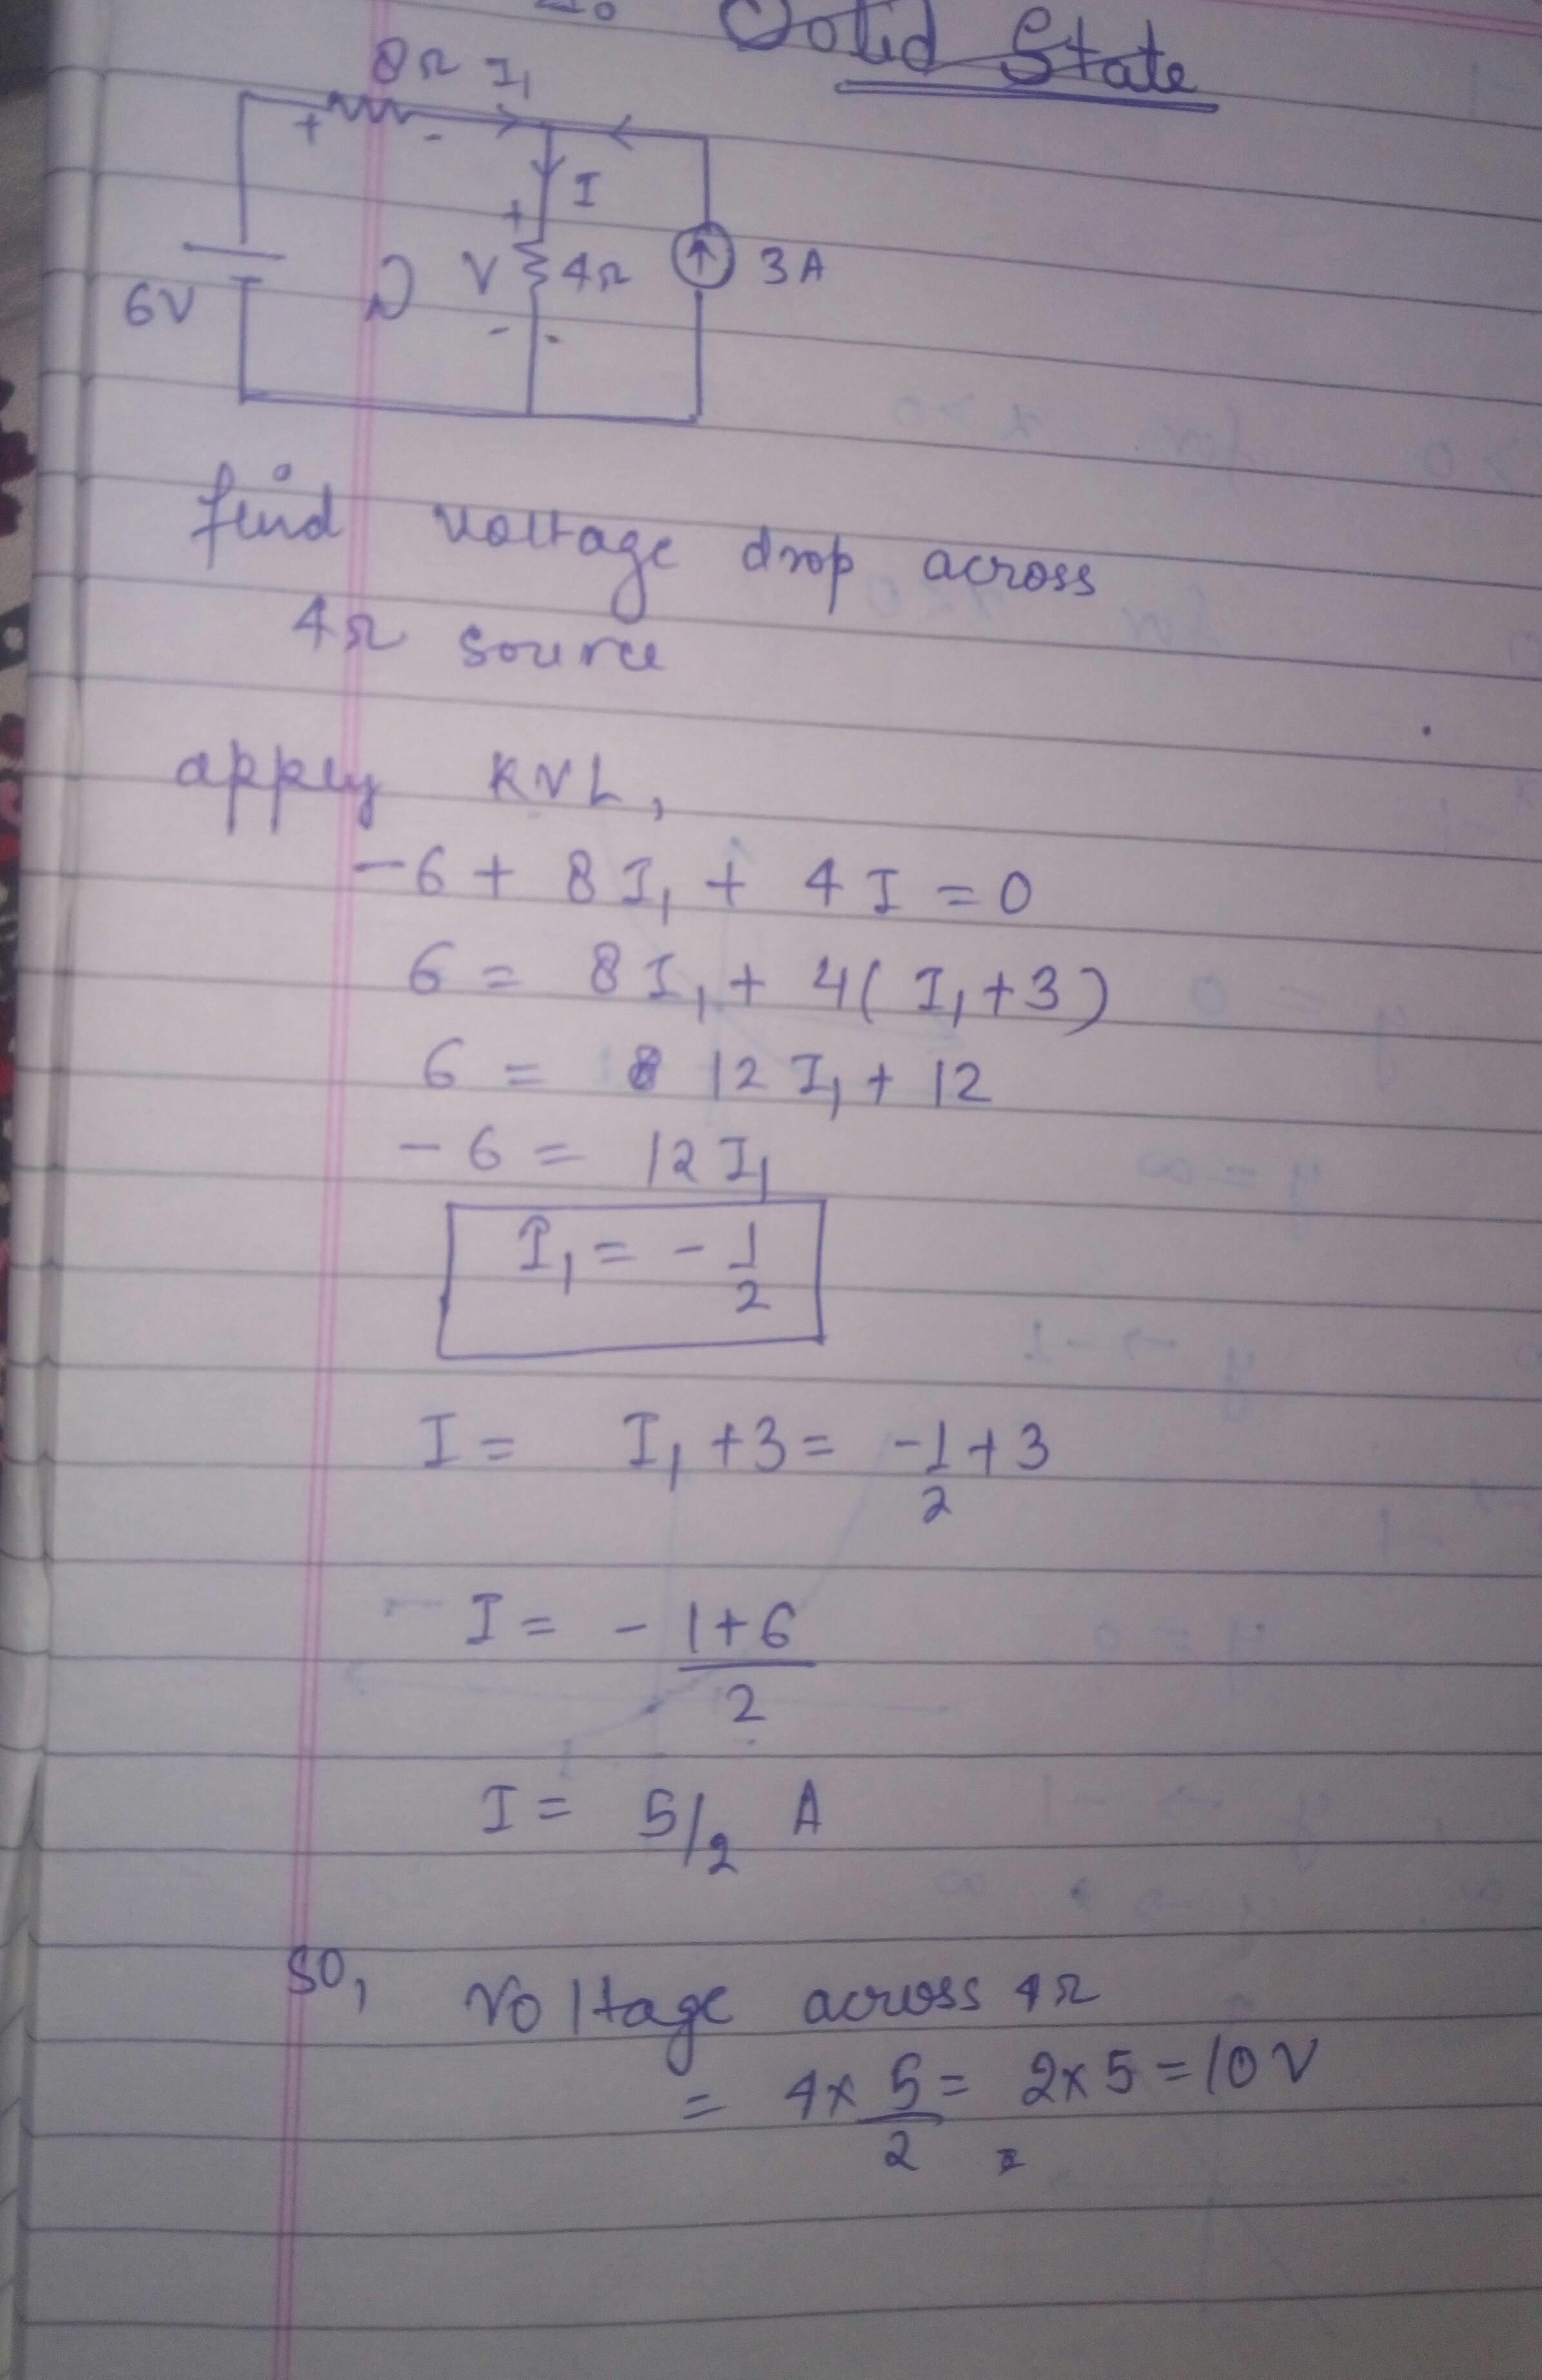 Solid State
8Ω I₁
+ -
I
+
6V V 4Ω 3A
- -
find voltage drop across
4Ω source
apply KVL,
-6 + 8I₁ + 4I = 0
6 = 8I₁ + 4(I₁+3)
6 = 12I₁ + 12
-6 = 12I₁
I₁ = -1/2
I = I₁ +3 = -1/2 +3
I = -1+6/2
I = 5/2 A
SO, Voltage across 4Ω
= 4x 5/2 = 2x5 = 10V